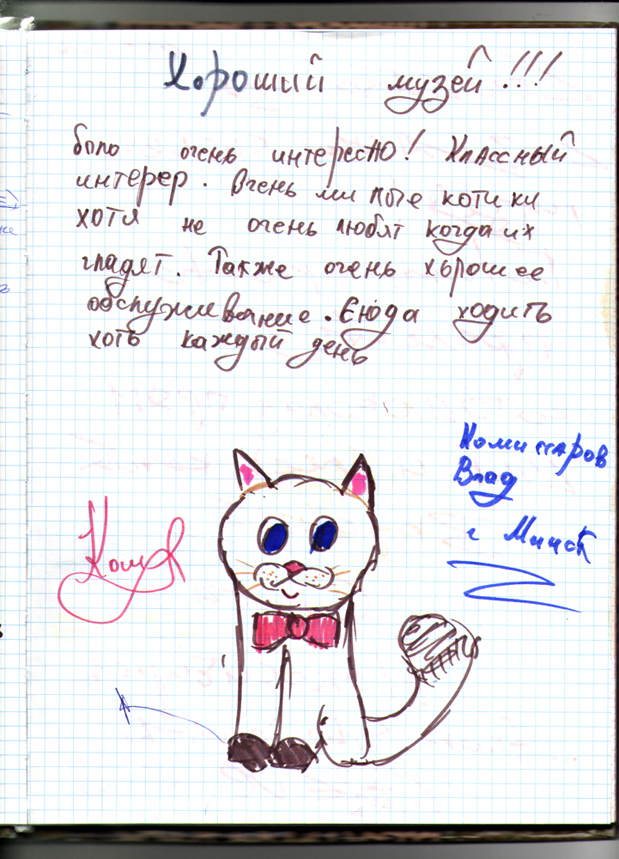 Хороший музей!!!
было очень интересно! Классный
интерер. Очень милые котики
хотя не очень любят когда их
гладят. Также очень хорошее
обслуживание. Сюда ходить
хоть каждый день
Комиссаров
Влад
г Минск